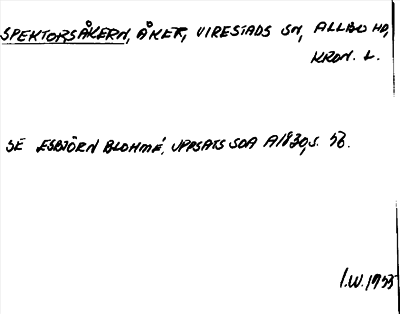 SPEKTORSÅKERN, ÅKER, VIRESTADS SN, ALLBO HD,
KRON. L.
SE ESBJÖRN BLOHMÉ, UPPSATS SOA A1830, S. 53.
I.W. 1955